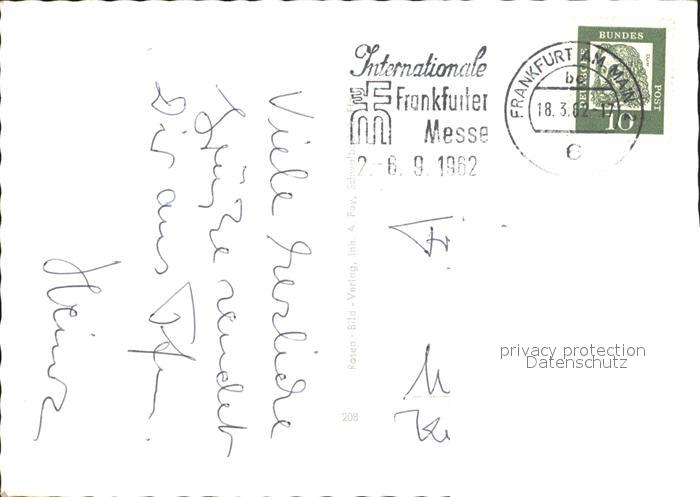 Internationale
Frankfurter
Messe
2.-6. 9. 1962
FRANKFURT AM MAIN
18.3.62-17
DEUTSCHE BUNDES POST
10
Viele herzliche
Grüße sendet
Dir aus
Heinz
Rosen-Bild-Verlag, Inh. A. Fay,
208
privacy protection
Datenschutz